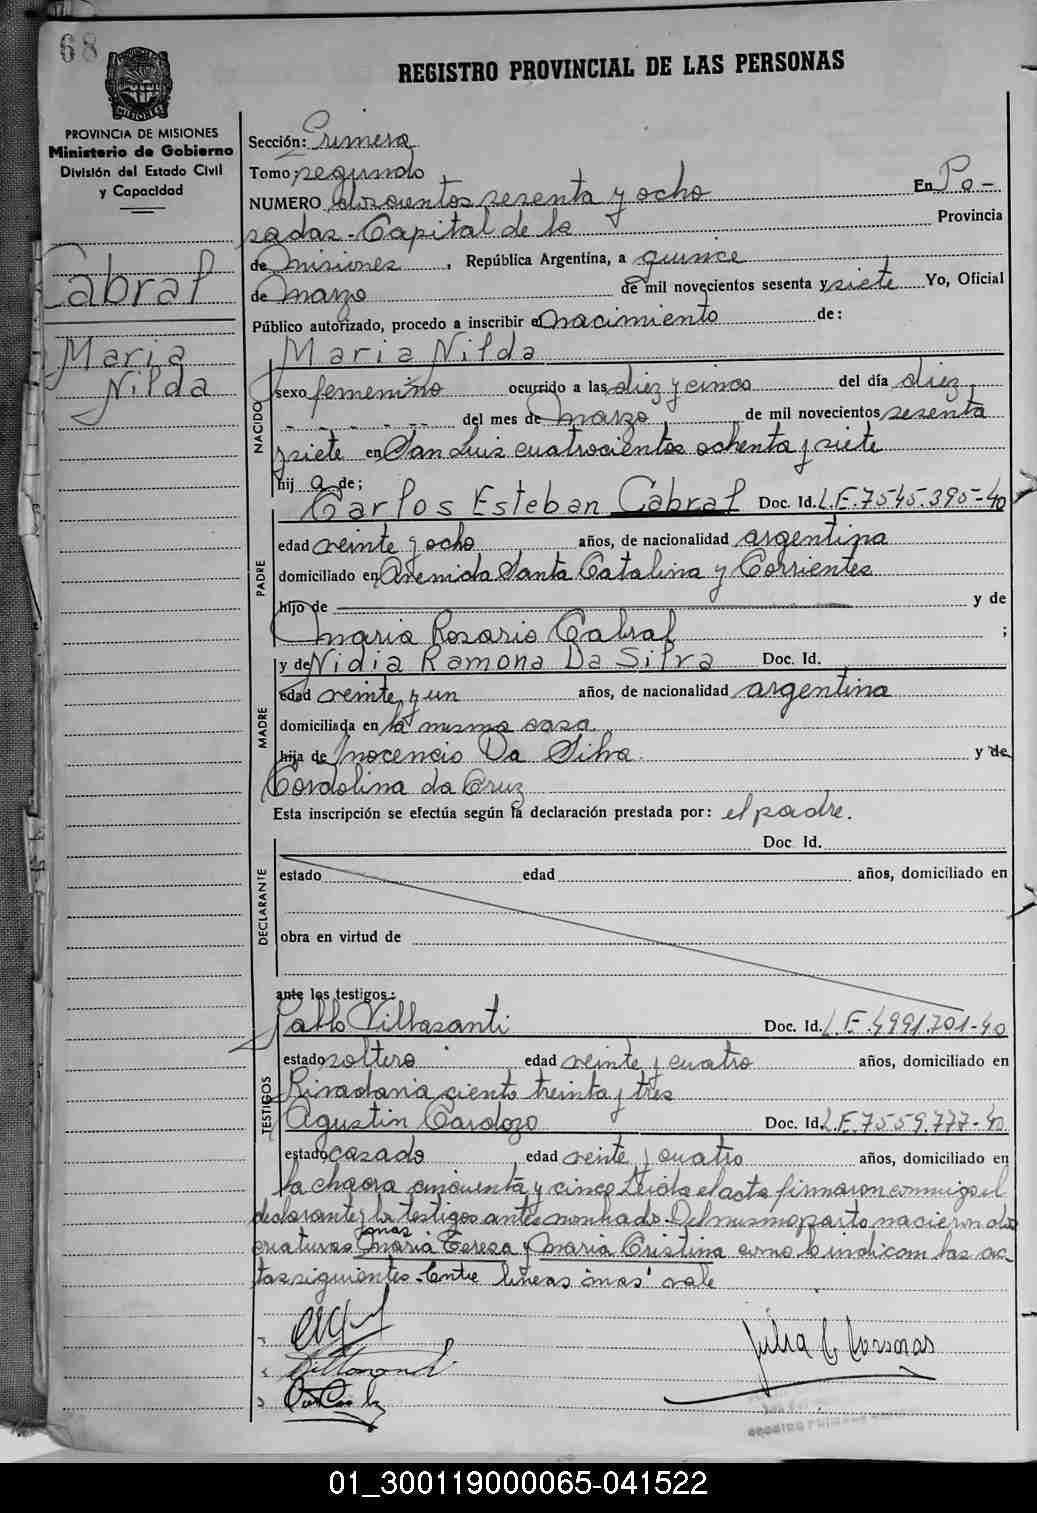 68
REGISTRO PROVINCIAL DE LAS PERSONAS
MISIONES
PROVINCIA DE MISIONES
Ministerio de Gobierno
División del Estado Civil
y Capacidad
Cabral
Maria
Nilda
Sección: Primera
Tomo: segundo
NUMERO doscientos sesenta y ocho En Po-
sadas - Capital de la Provincia
de Misiones, República Argentina, a quince
de Marzo de mil novecientos sesenta y siete Yo, Oficial
Público autorizado, procedo a inscribir el nacimiento de:
Maria Nilda
NACIDO
sexo femenino ocurrido a las diez y cinco del día diez
del mes de Marzo de mil novecientos sesenta
y siete en San Luis cuatrocientos ochenta y siete
hij a de;
Carlos Esteban Cabral Doc. Id. L.E. 7.545.395-40
PADRE
edad veinte y ocho años, de nacionalidad argentina
domiciliado en Avenida Santa Catalina y Corrientes
hijo de y de
Maria Rosario Cabral ;
y de Nidia Ramona Da Silva Doc. Id.
MADRE
edad veinte y un años, de nacionalidad argentina
domiciliada en la misma casa
hija de Inocencio Da Silva y de
Cordolina da Cruz
Esta inscripción se efectúa según la declaración prestada por: el padre.
Doc. Id.
DECLARANTE
estado edad años, domiciliado en
obra en virtud de
ante los testigos:
Pablo Villasanti Doc. Id. L.E. 4991.701-40
TESTIGOS
estado soltero edad veinte y cuatro años, domiciliado en
Rivadavia ciento treinta y tres
Agustin Cardozo Doc. Id. L.E. 7559.777-40
estado casado edad veinte y cuatro años, domiciliado en
la chacra cincuenta y cinco Leida el acta firmaron conmigo el
declarante y los testigos antes nombrado. Del mismo parto nacieron dos
criaturas mas Maria Teresa y Maria Cristina como lo indican las ac-
tas siguientes - Entre lineas "mas" vale
01_300119000065-041522